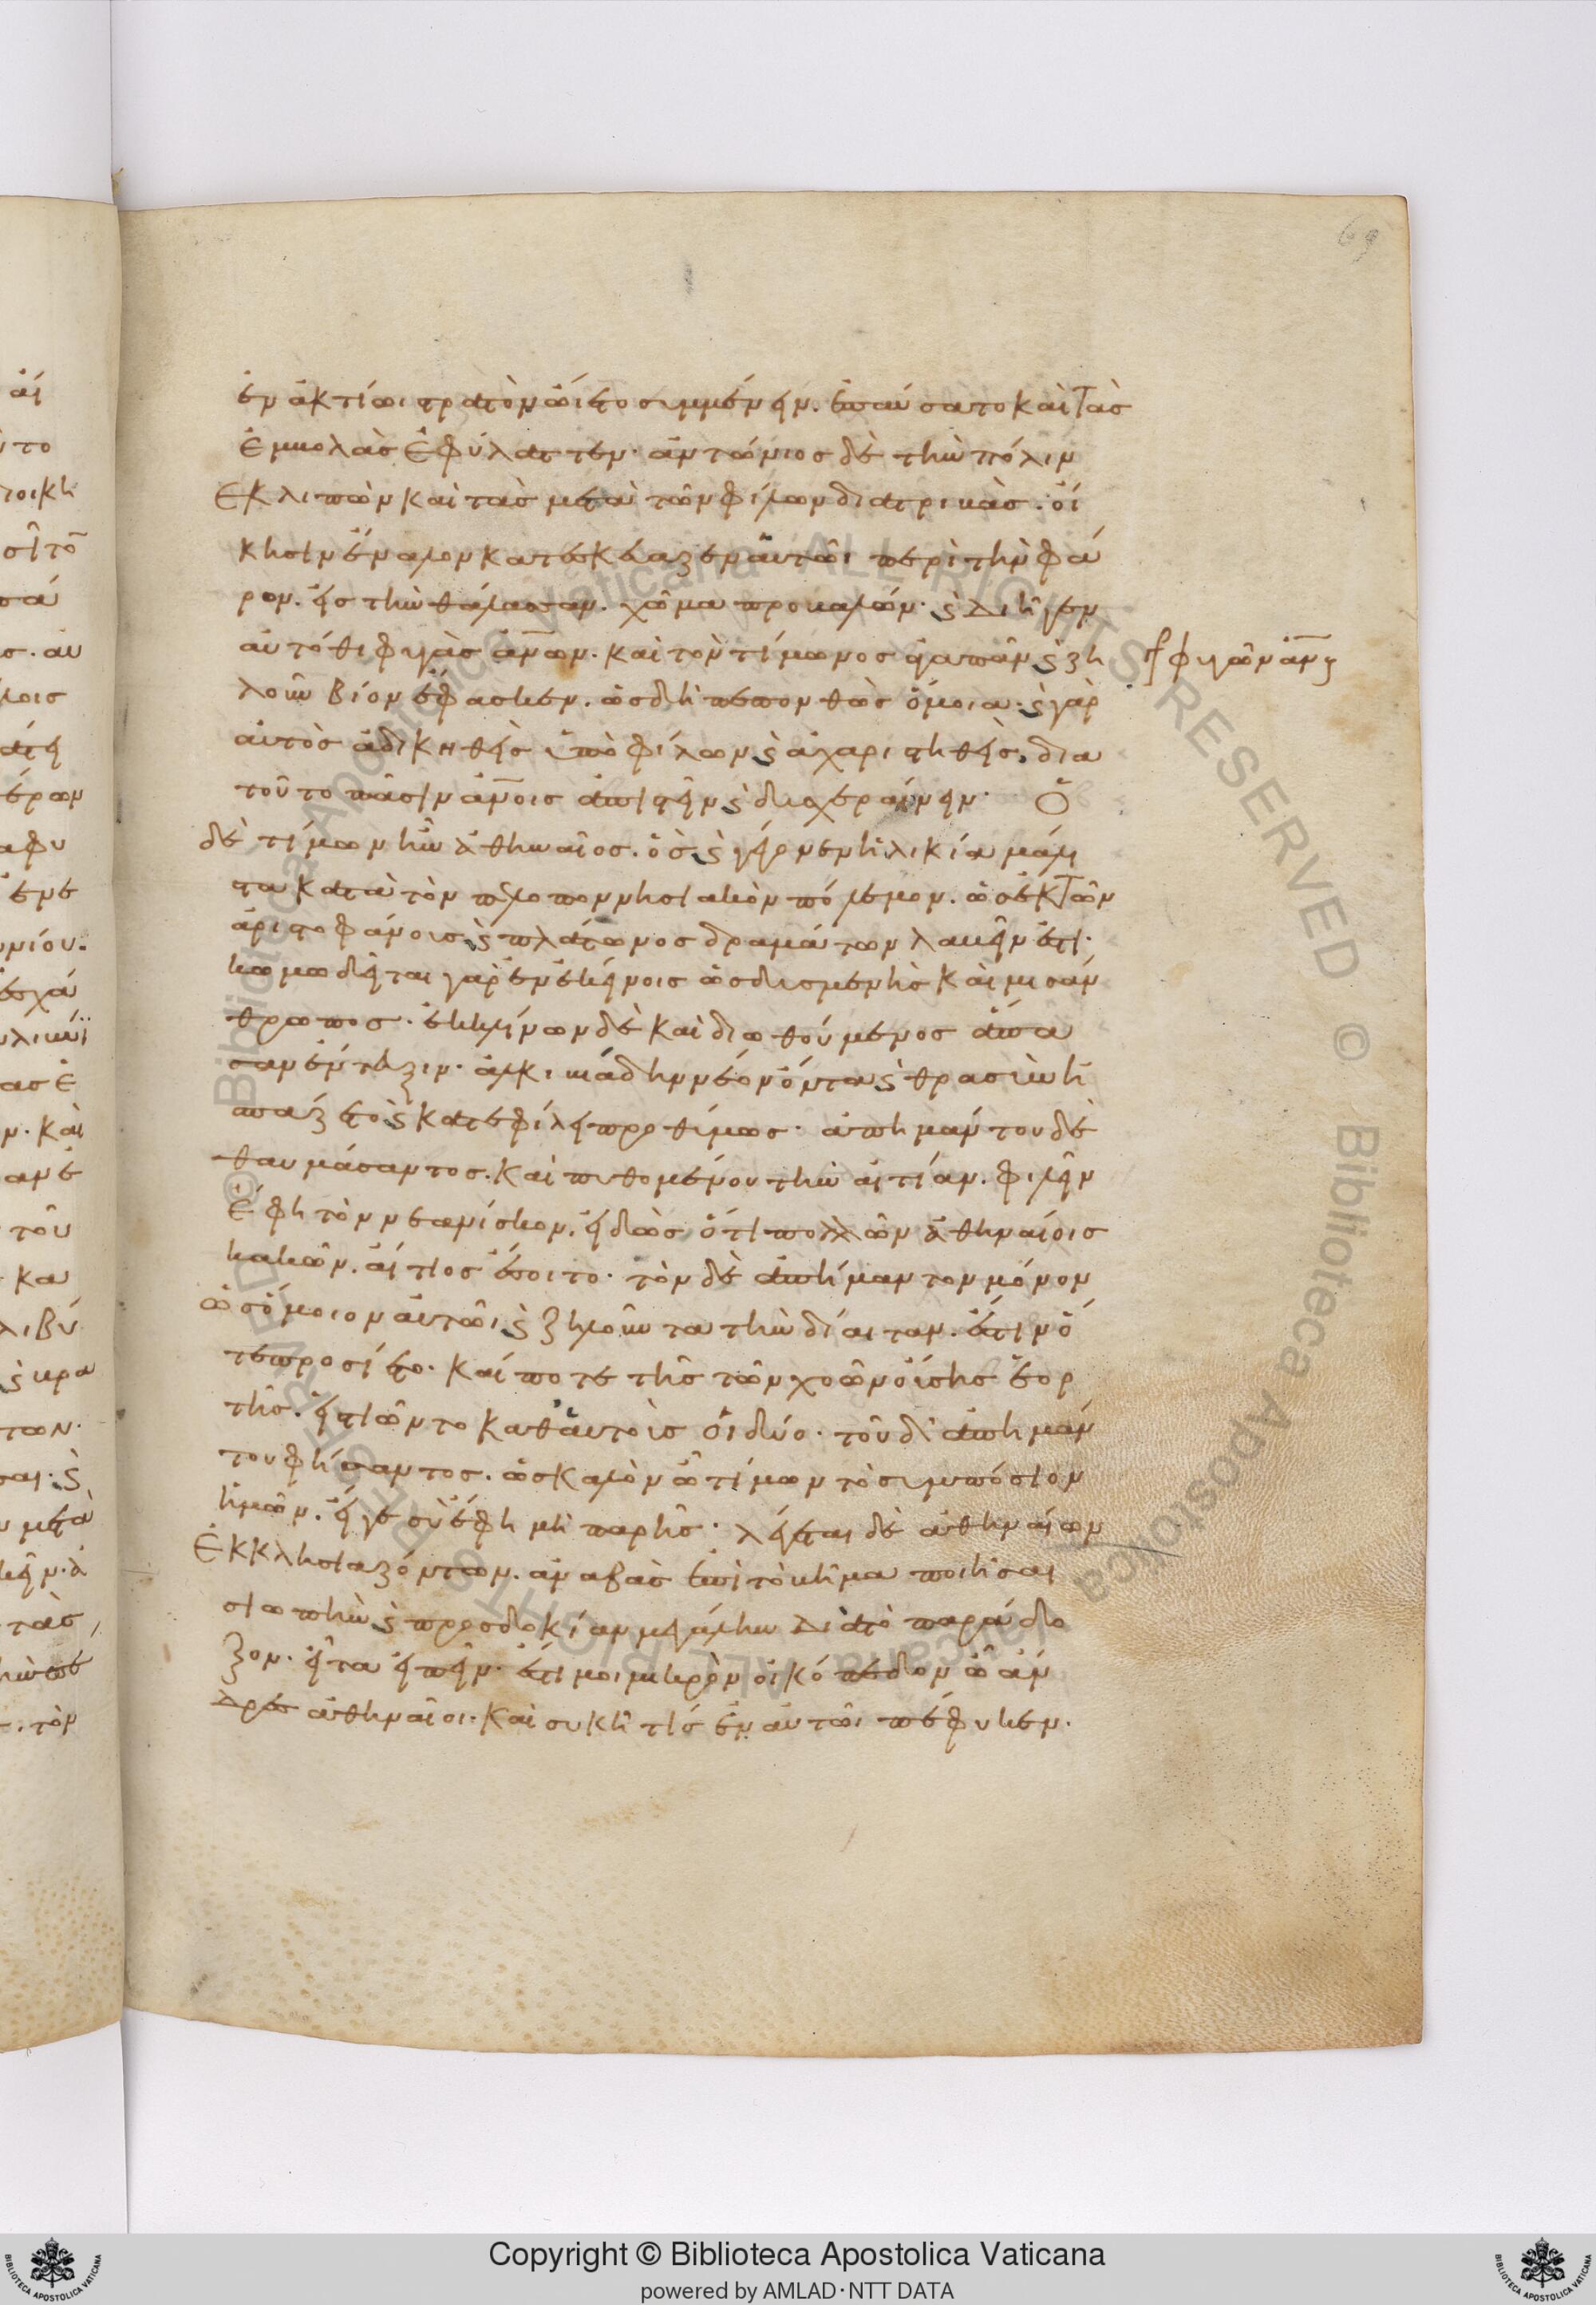 ἐν ἀκτίωι στρατὸν ὤιετο συμμένειν. ἐπαύσατο καὶ τὰσ
ἐμβολὰσ ἐφύλαττεν· ἀντώνιοσ δὲ τὴν πόλιν
ἐκλιπὼν καὶ τὰσ μετὰ τῶν φίλων διατριβὰσ. οἴ
κησιν ἔναλον κατεσκέαζεν ἁυτῶι περὶ τὴν φά
ρον. εἰσ τὴν θάλασσαν. χῶμα προβαλών· ϗ διῆγεν
αὐτόθι φυγὰσ ἀν̅ων. καὶ τὸν τίμωνοσ ἀγαπᾶν ϗ ζη
λοῦν βίον ἔφασκεν. ὡσ δὴ πεπονθὼσ ὅμοια· ϗ γὰρ
αὐτὸσ ἀδικηθεὶσ ὑπὸ φίλων ϗ ἀχαριστηθεὶσ. δια
τοῦτο πᾶσιν ἀν̅οισ ἀπιστεῖν ϗ δυσχεραίνειν· Ὁ
δὲ τίμων ἦν ἀθηναῖοσ. ὃσ ϗ γέγονεν ἡλικίαι μάλι
στα κατὰ τὸν πελοποννησιακὸν πόλεμον. ὡσ ἐκ τῶν
ἀριστοφάνουσ ϗ πλάτωνοσ δραμάτων λαβεῖν ἔστι·
κωμωδεῖται γὰρ ἐν ἐκείνοισ ὡσ δυσμενὴσ καὶ μισάν
θρωποσ· ἐκκλίνων δὲ καὶ διωθούμενοσ ἅπα
σαν ἔντευξιν· ἀλκιβιάδην νέον ὄντα ϗ θρασὺν ἠ
σπάζετο ϗ κατεφίλει προθύμωσ· ἀπημάντου δὲ
θαυμάσαντοσ. καὶ πυθομένου τὴν αἰτίαν. φιλεῖν
ἔφη τὸν νεανίσκον. εἰδὼσ ὅτι πολλῶν ἀθηναίοισ
κακῶν. αἴτιοσ ἔσοιτο· τὸν δὲ ἀπήμαντον μόνον
ὡσ ὅμοιον αὐτῶι ϗ ζηλοῦντα τὴν δίαιταν. ἔστιν ὅ
τε προσίετο· καί ποτε τῆσ τῶν χοῶν οὔσησ ἑορ
τῆσ. εἱστιῶντο καθ᾽ ἁυτοὺσ οἱ δύο· τοῦ δ᾽ ἀπημάν
του φήσαντοσ. ὡσ καλὸν ὦ τίμων τὸ συμπόσιον
ἡμῶν. εἴγε σὺ ἔφη μὴ παρῆσ· λέγεται δὲ ἀθηναίων
ἐκκλησιαζόντων. ἀναβὰσ ἐπὶ τὸ βῆμα ποιῆσαι
σιωπὴν ϗ προσδοκίαν μεγάλην διὰ τὸ παράδο
ξον· εἶτα εἰπεῖν· ἔστι μοι μικρὸν οἰκόπεδον ὦ ἄν
δρεσ ἀθηναῖοι· καὶ συκῆ τίσ ἐν αὐτῶι πέφυκεν·
φυγῶν ἀν̅ουσ